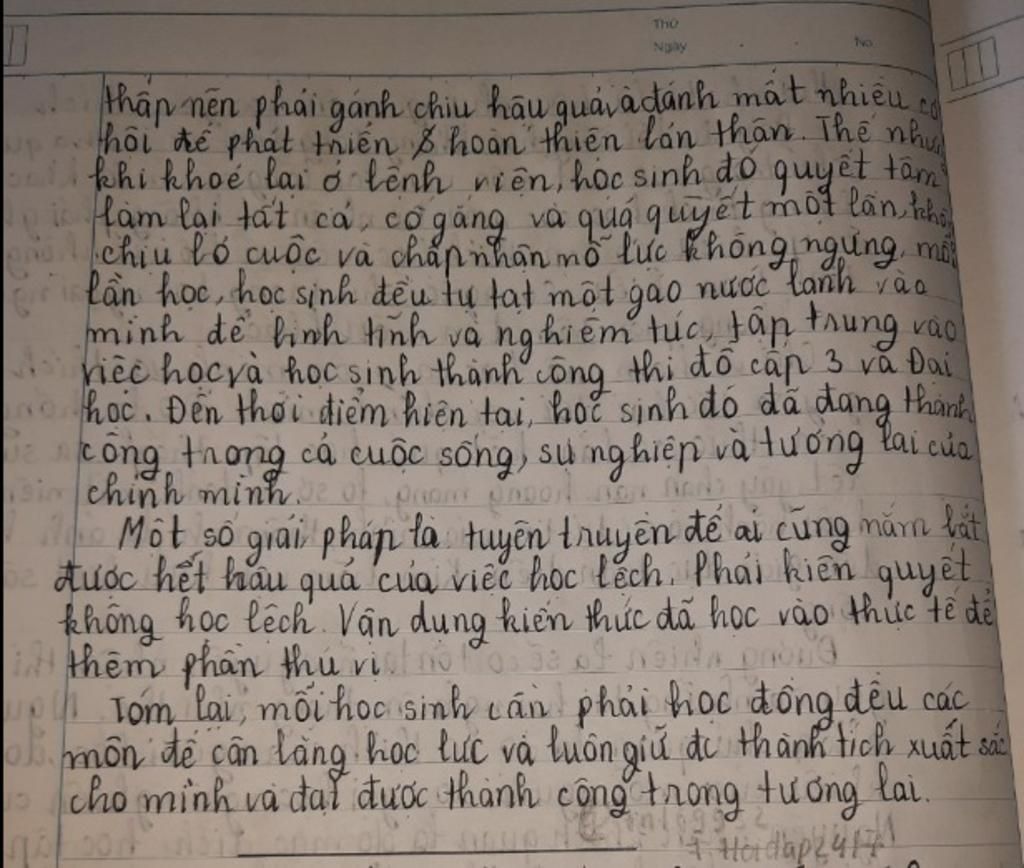 Thứ
Ngày No.
thấp nên phải gánh chịu hậu quả và đánh mất nhiều cơ
hội để phát triển & hoàn thiện bản thân. Thế nhưng
khi khoẻ lại ở bệnh viện, học sinh đó quyết tâm
làm lại tất cả, cố gắng và quả quyết một lần, không
chịu bỏ cuộc và chấp nhận nỗ lực không ngừng, mỗi
lần học, học sinh đều tự tạt một gáo nước lạnh vào
mình để bình tĩnh và nghiêm túc, tập trung vào
việc học và học sinh thành công thi đỗ cấp 3 và Đại
học. Đến thời điểm hiện tại, học sinh đó đã đang thành
công trong cả cuộc sống, sự nghiệp và tương lai của
chính mình.
Một số giải pháp là tuyên truyền để ai cũng nắm bắt
được hết hậu quả của việc học lệch. Phải kiên quyết
không học lệch. Vận dụng kiến thức đã học vào thực tế để
thêm phần thú vị.
Tóm lại, mỗi học sinh cần phải học đồng đều các
môn để cân bằng học lực và luôn giữ đc thành tích xuất sắc
cho mình và đạt được thành công trong tương lai.
Hoidap247